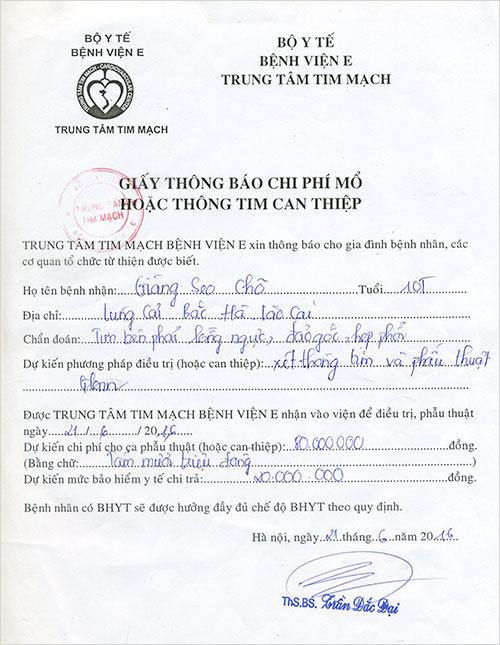 BỘ Y TẾ
BỆNH VIỆN E
TRUNG TÂM TIM MẠCH - CARDIOVASCULAR CENTER
TRUNG TÂM TIM MẠCH
BỘ Y TẾ
BỆNH VIỆN E
TRUNG TÂM TIM MẠCH
TRUNG TÂM
TIM MẠCH
GIẤY THÔNG BÁO CHI PHÍ MỔ
HOẶC THÔNG TIM CAN THIỆP
TRUNG TÂM TIM MẠCH BỆNH VIỆN E xin thông báo cho gia đình bệnh nhân, các
cơ quan tổ chức từ thiện được biết.
Họ tên bệnh nhân: Giàng Seo Chô Tuổi 10T
Địa chỉ: Lùng Cải Bắc Hà Lào Cai
Chẩn đoán: Tim bên phải lồng ngực, đảo gốc, hẹp phổi
Dự kiến phương pháp điều trị (hoặc can thiệp): xét thông tim và phẫu thuật
Glenn
Được TRUNG TÂM TIM MẠCH BỆNH VIỆN E nhận vào viện để điều trị, phẫu thuật
ngày 21 / 6 / 2016
Dự kiến chi phí cho ca phẫu thuật (hoặc can thiệp): 80.000.000 đồng.
(Bằng chữ: Tám mươi triệu đồng )
Dự kiến mức bảo hiểm y tế chi trả: 20.000.000 đồng.
Bệnh nhân có BHYT sẽ được hưởng đầy đủ chế độ BHYT theo quy định.
Hà nội, ngày 21 tháng 6 năm 2016
ThS.BS. Trần Đắc Đại